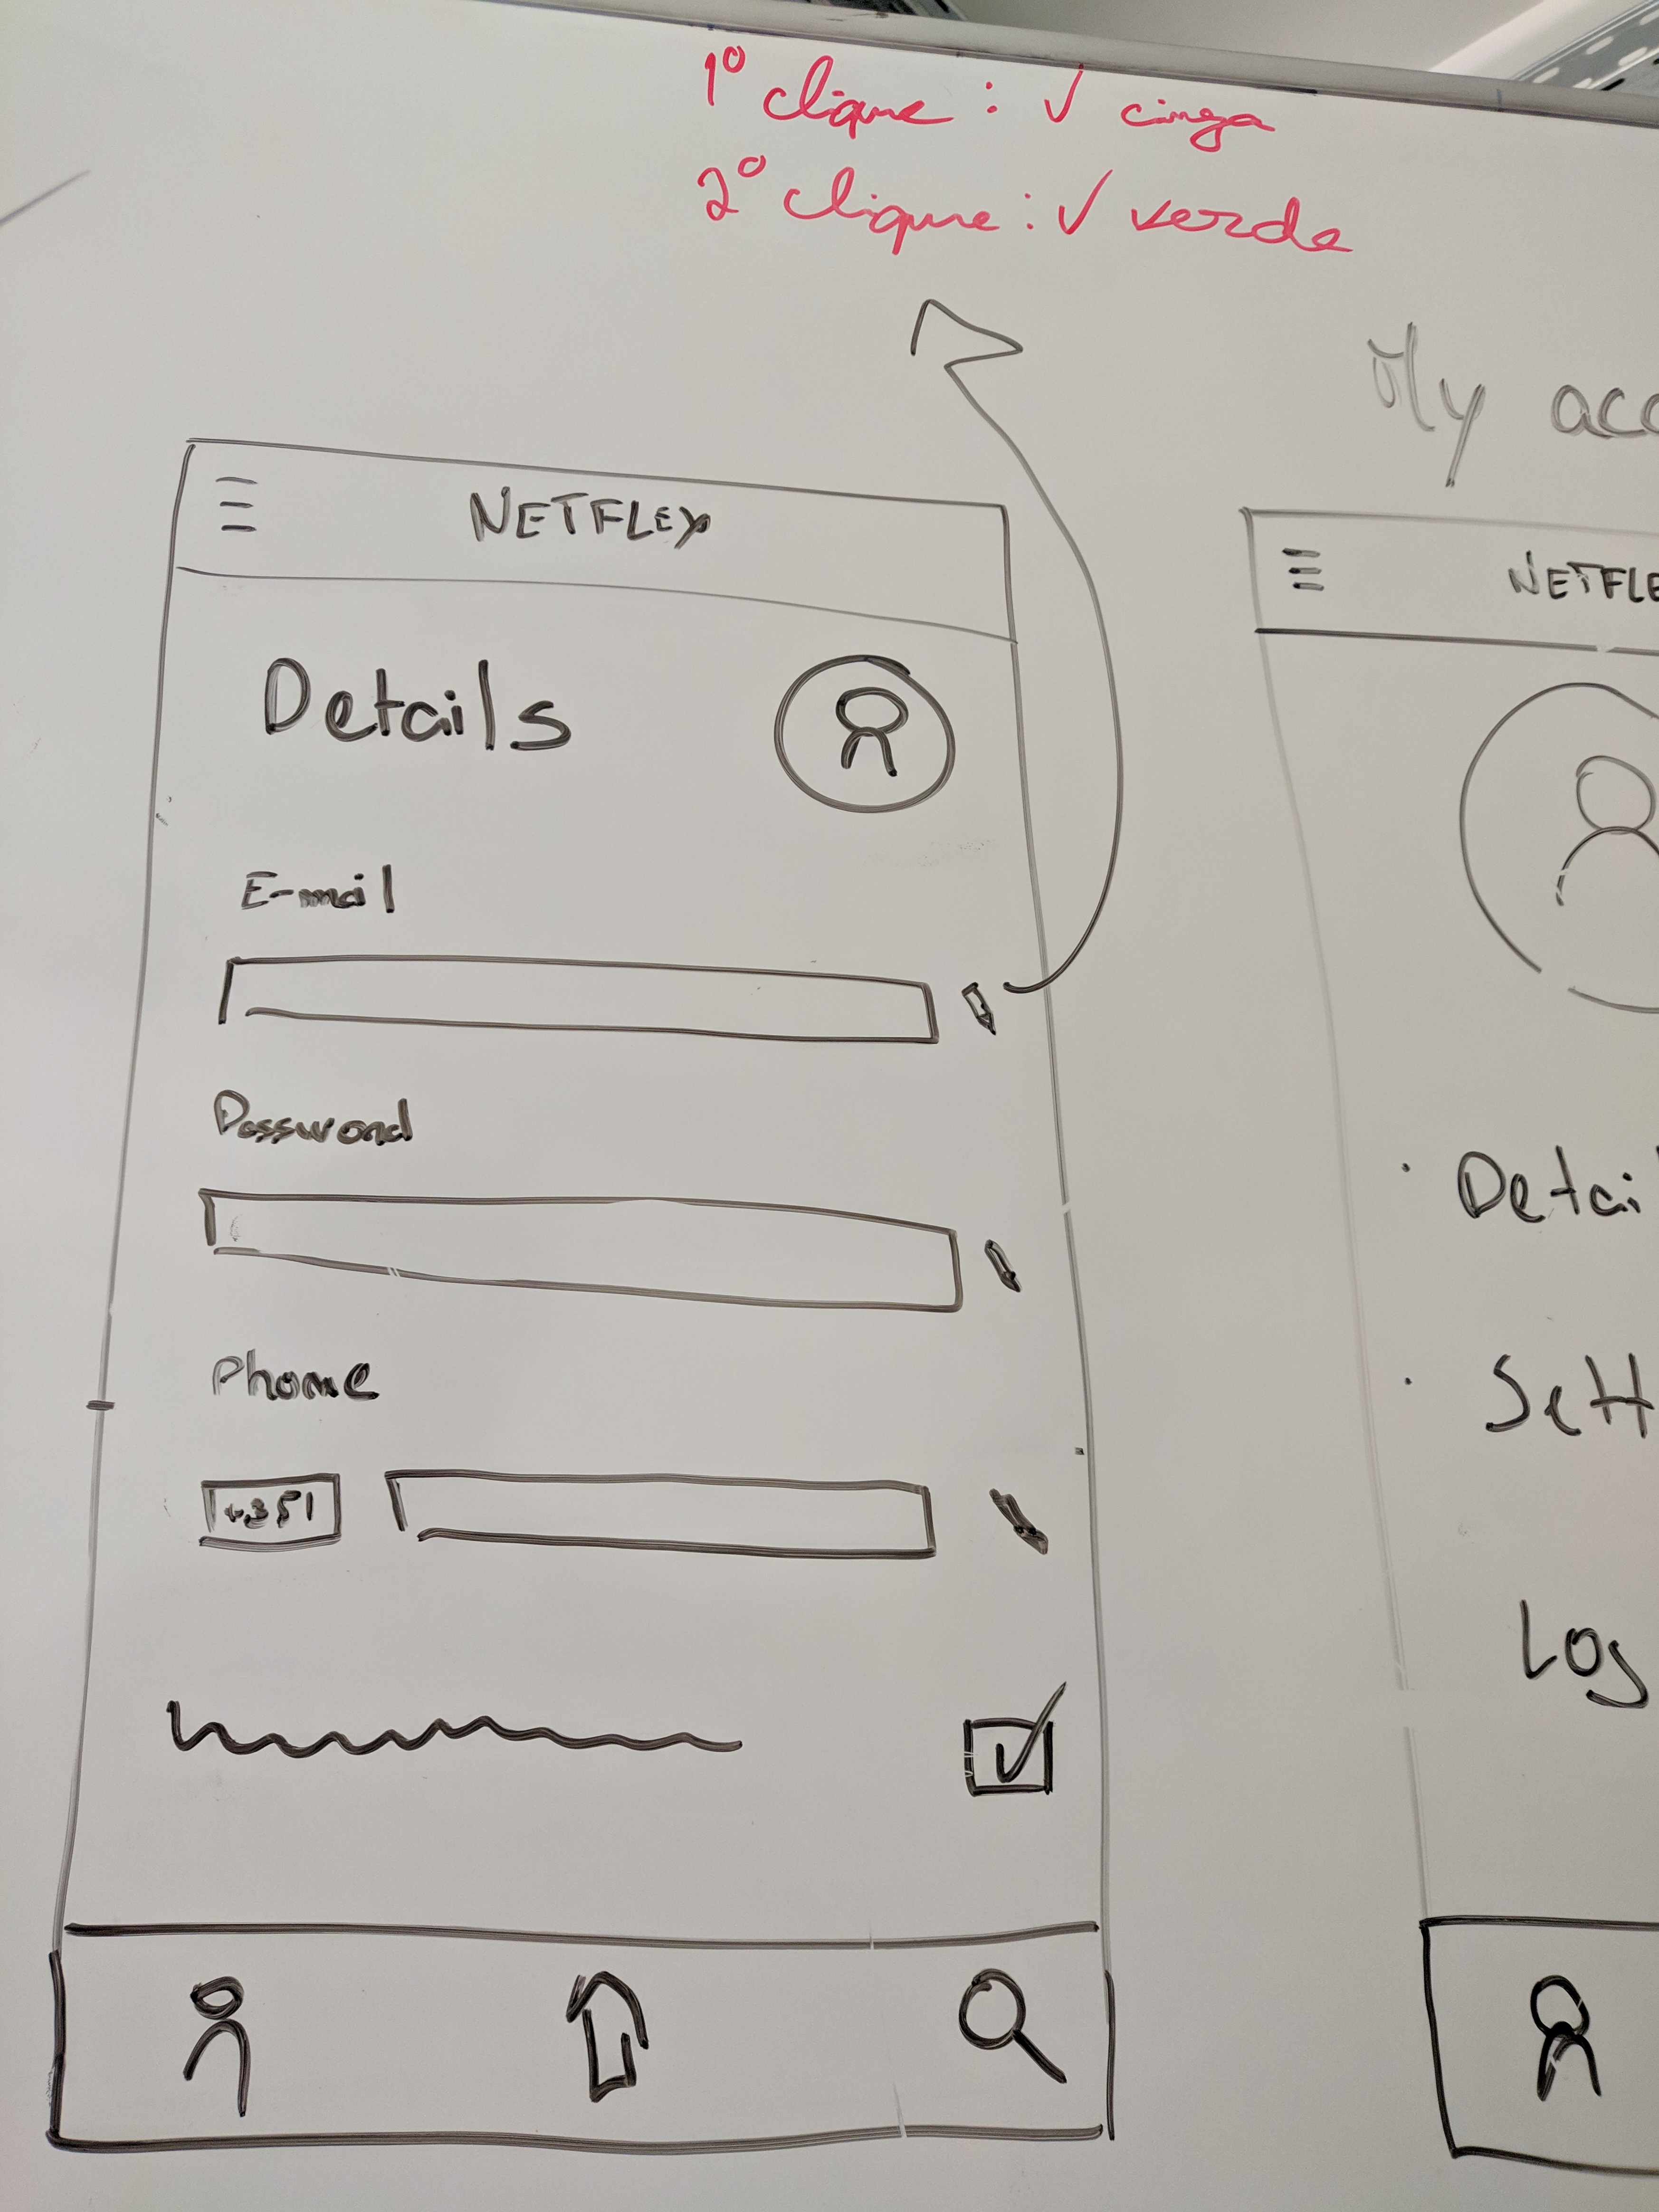 1º clique : ✓ cinza
2º clique : ✓ verde
NETFLEX
Details
E-mail
Password
Phone
+351
My acc
NETFLE
· Detai
· Sett
Log